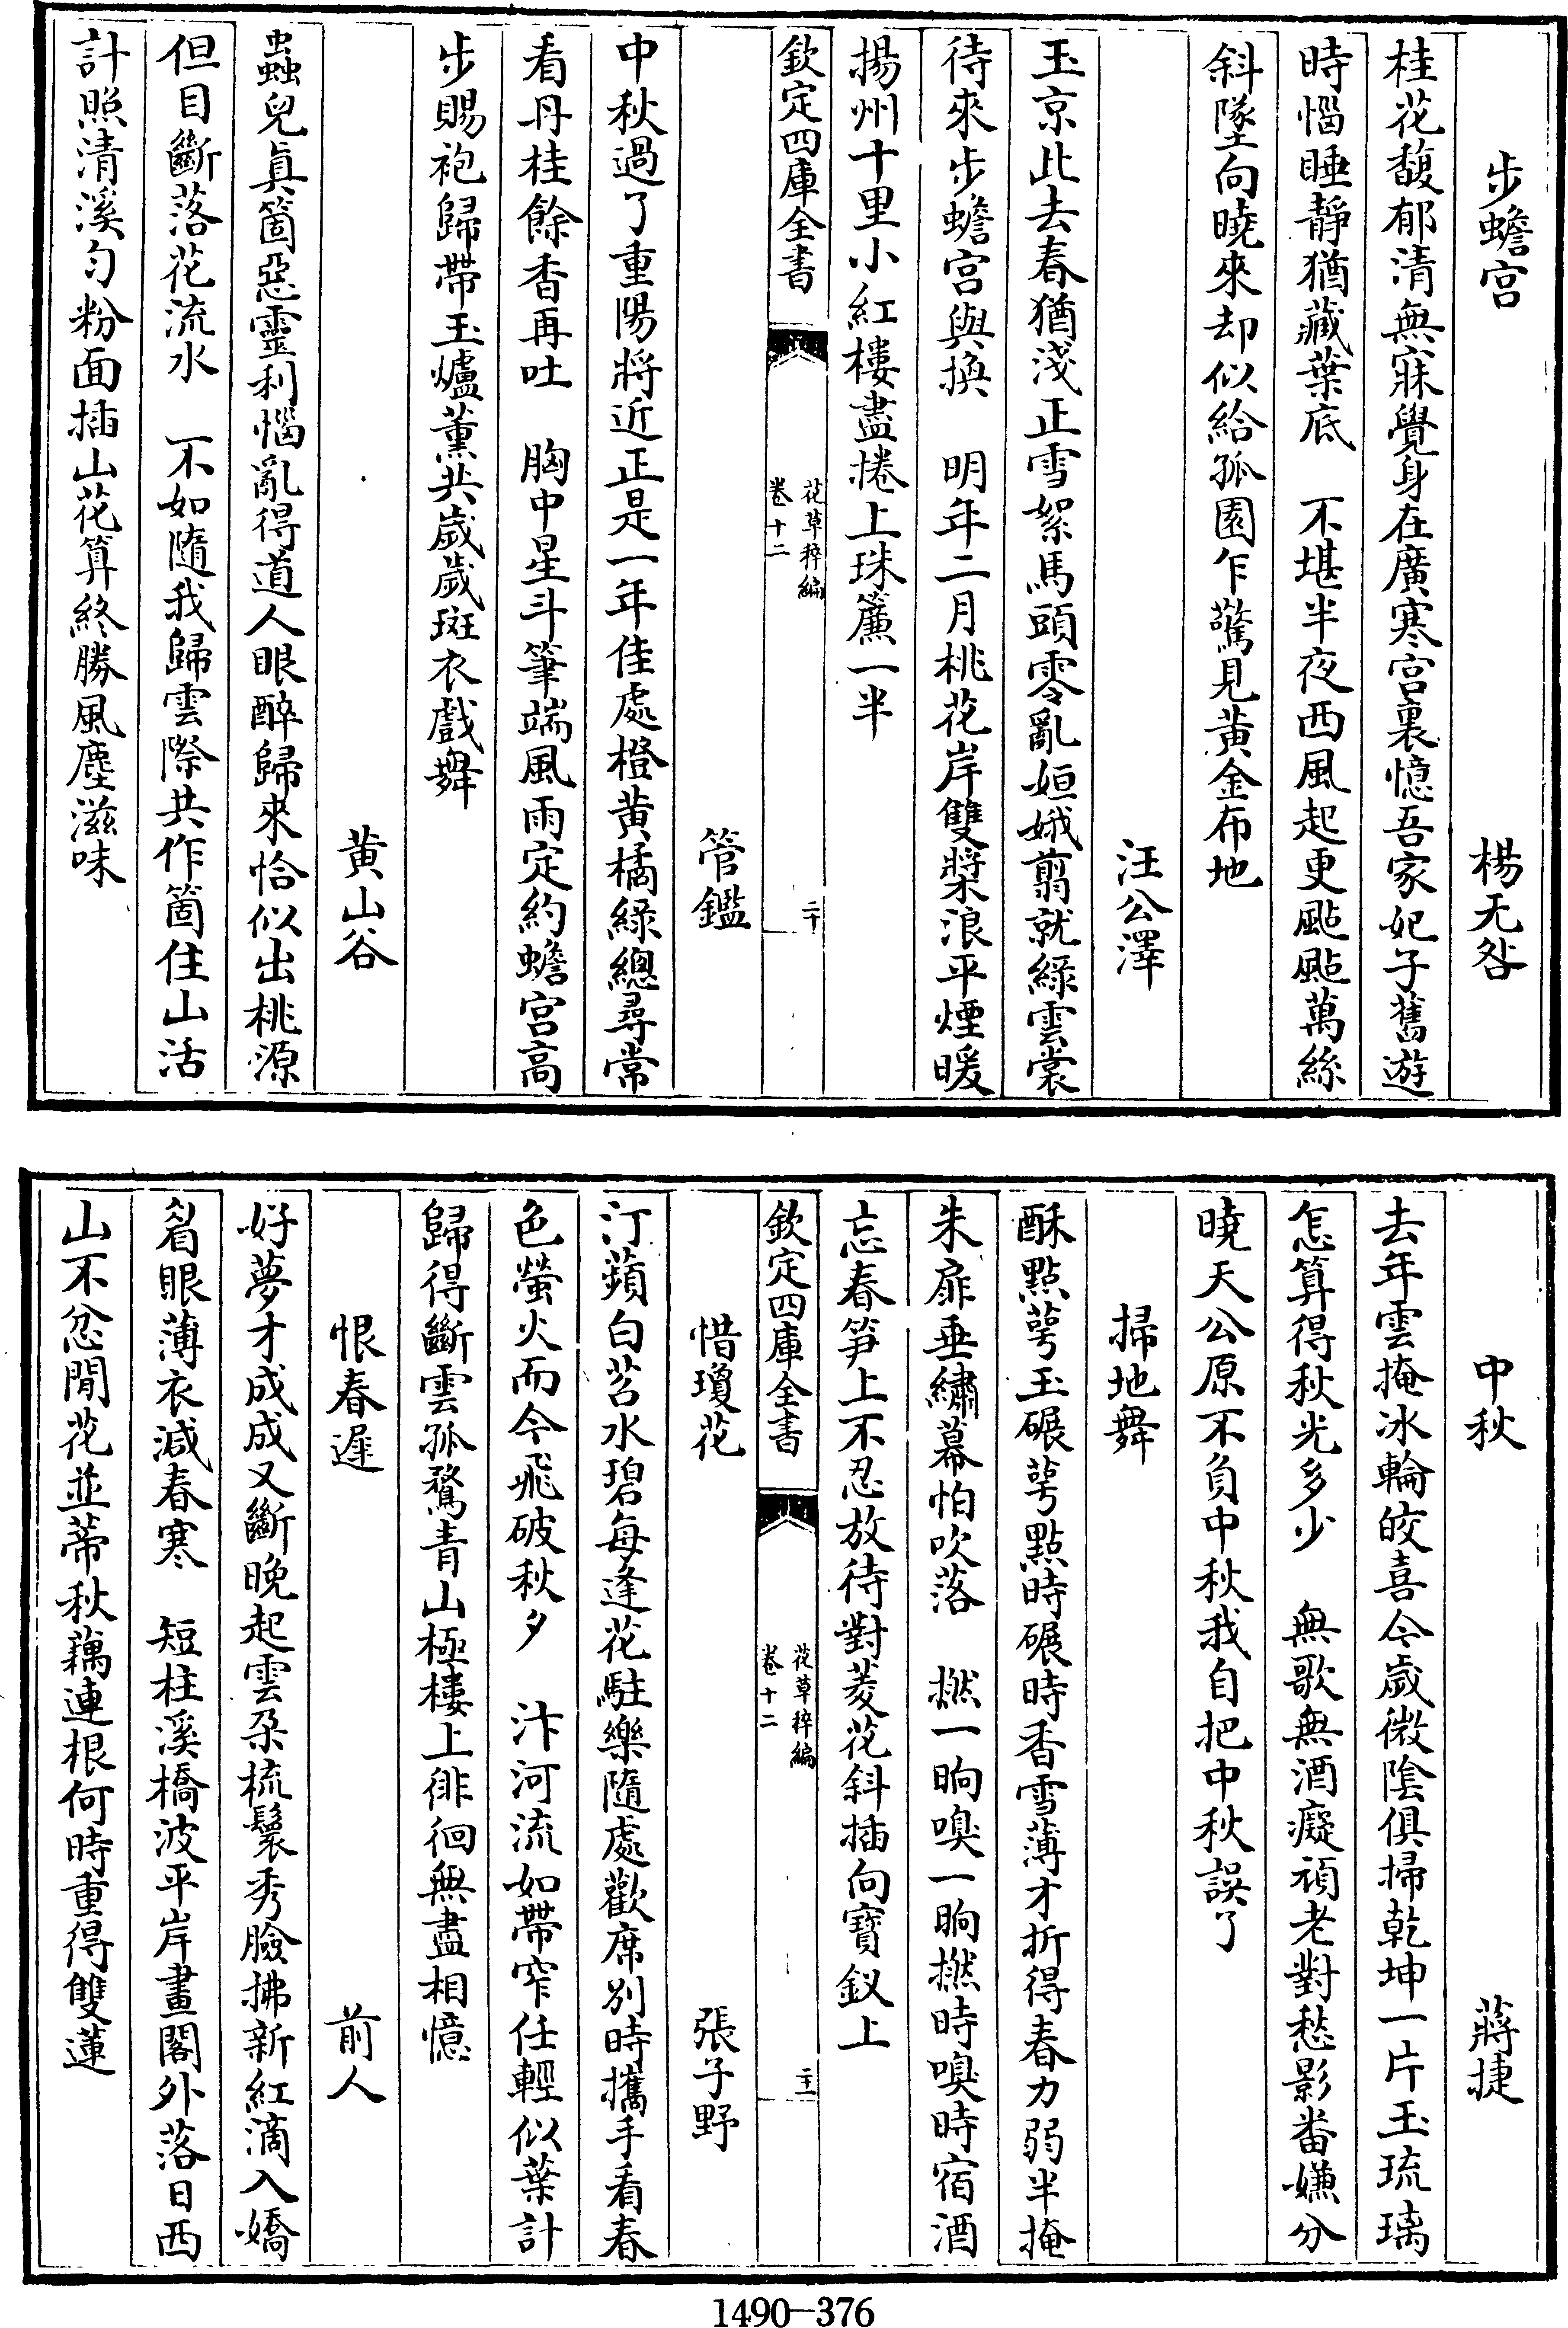 步蟾宫　楊无咎
桂花馥郁清無寐覺身在廣寒宫裏憶吾家妃子舊遊
時惱睡靜猶藏葉底　不堪半夜西風起更颭颭萬絲
斜墜向曉來却似給孤園乍驚見黄金布地
汪公澤
玉京此去春猶淺正雪絮馬頭零亂姮娥翦就緑雲裳
待來步蟾宫與換　明年二月桃花岸雙槳浪平煙暖
揚州十里小紅樓盡捲上珠簾一半
欽定四庫全書　花草稡編　卷十二　二十
管鑑
中秋過了重陽將近正是一年佳處橙黄橘緑總尋常
看丹桂餘香再吐　胸中星斗筆端風雨定約蟾宫高
步賜袍歸帶玉爐薰共歲歲斑衣戲舞
黄山谷
蟲兒真箇惡靈利惱亂得道人眼醉歸來恰似出桃源
但目斷落花流水　不如隨我歸雲際共作箇住山活
計照清溪勻粉面插山花算終勝風塵滋味
中秋　蔣捷
去年雲掩冰輪皎喜今歲微陰俱掃乾坤一片玉琉璃
怎算得秋光多少　無歌無酒癡頑老對愁影畨嫌分
曉天公原不負中秋我自把中秋誤了
掃地舞
酥點萼玉碾萼點時碾時香雪薄才折得春力弱半掩
朱扉垂繡幕怕吹落　撚一晌嗅一晌撚時嗅時宿酒
忘春笋上不忍放待對菱花斜插向寶釵上
欽定四庫全書　花草稡編　卷十二　二十一
惜瓊花　張子野
汀蘋白苕水碧每逢花駐樂隨處歡席别時攜手看春
色螢火而今飛破秋夕　汴河流如帶窄任輕似葉計
歸得斷雲孤鶩青山極樓上徘徊無盡相憶
恨春遲　前人
好夢才成成又斷晚起雲朶梳鬟秀臉拂新紅滴入嬌
眉眼薄衣減春寒　短柱溪橋波平岸畫閣外落日西
山不忿閒花並蒂秋藕連根何時重得雙蓮
1490—376